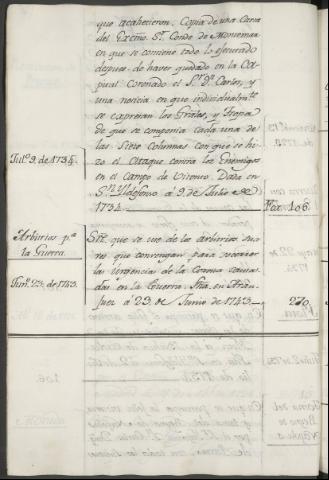 que acahecieron. Copia de una Carta
del Exc.mo S.or Conde de Montemar
en que se contiene todo lo ejecutado
despues de haver quedado en la Ca-
pual Coronado el S.r D.n Carlos, y
una noticia en que individualm.te
se expresan los Grãles, y Tropa
de que se componia cada una de
las Siete Columnas con que se hi-
Jul.o 9. de 1734.
zo el Ataque contra los Enemigos
en el Campo de Vitonto. Data en
S.n Yldefonso á 9. de Julio de
1734.
Fox. 106.
Arbitrios p.a
la Guerra.
que se use de los arbitrios ma-
res que convengan para socorrer
las urgencias de la Corona causa-
Jun.o 23. de 1743.
das en la Guerra. fha. en Aran-
juez á 23. de Junio de 1743.
270.